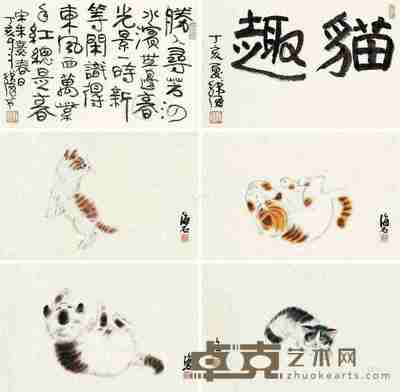 貓趣
丁亥夏
勝日尋芳泗
水濱無邊
光景一時新
等閑識得
東風面萬紫
千紅總是春
宋朱熹春日
丁亥
海石
海石
卓克艺术网